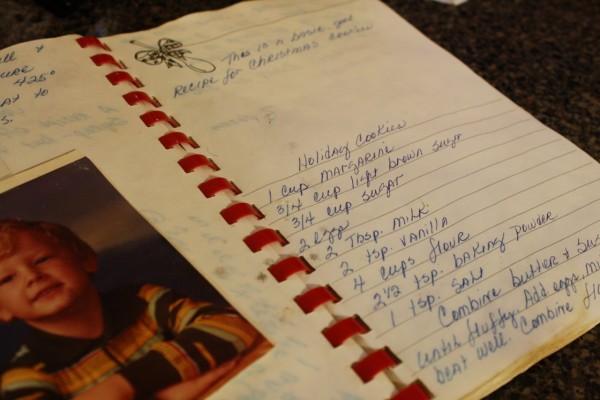 ll &
425°
at to
s.
This is a basic good
Recipe for Christmas cookies
Holiday Cookies
1 cup margarine
3/4 cup light brown sugar
3/4 cup sugar
2 eggs
2 Tbsp. milk
2 tsp. vanilla
4 cups flour
2 1/2 tsp. baking powder
1 tsp. salt
Combine butter & su
until fluffy. Add eggs, mi
beat well. Combine flo